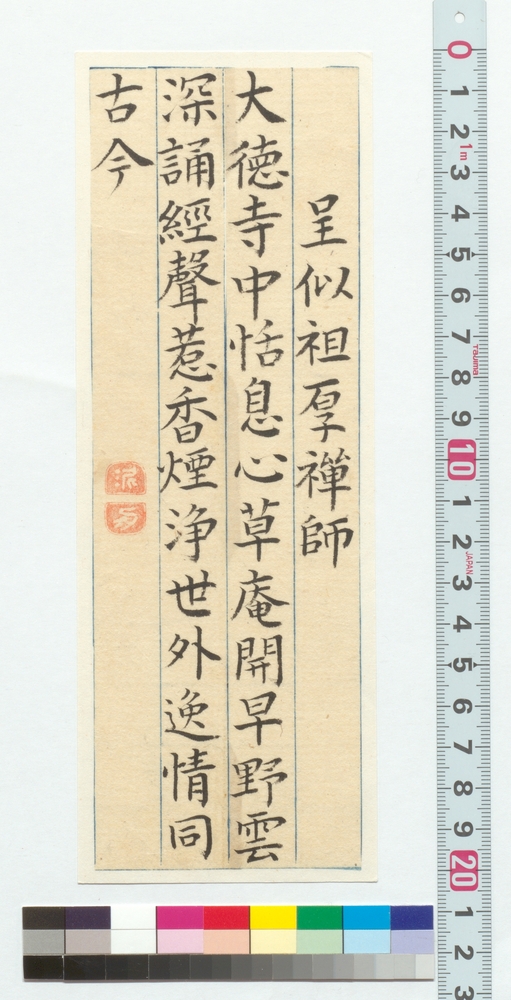 呈似祖厚禪師
大徳寺中恬息心草庵開早野雲
深誦經聲惹香煙浄世外逸情同
古今
0
1
2
1m
3
4
5
6
7
Tajima
8
9
10
1
2
JAPAN
3
4
5
6
7
8
9
20
1
2
3